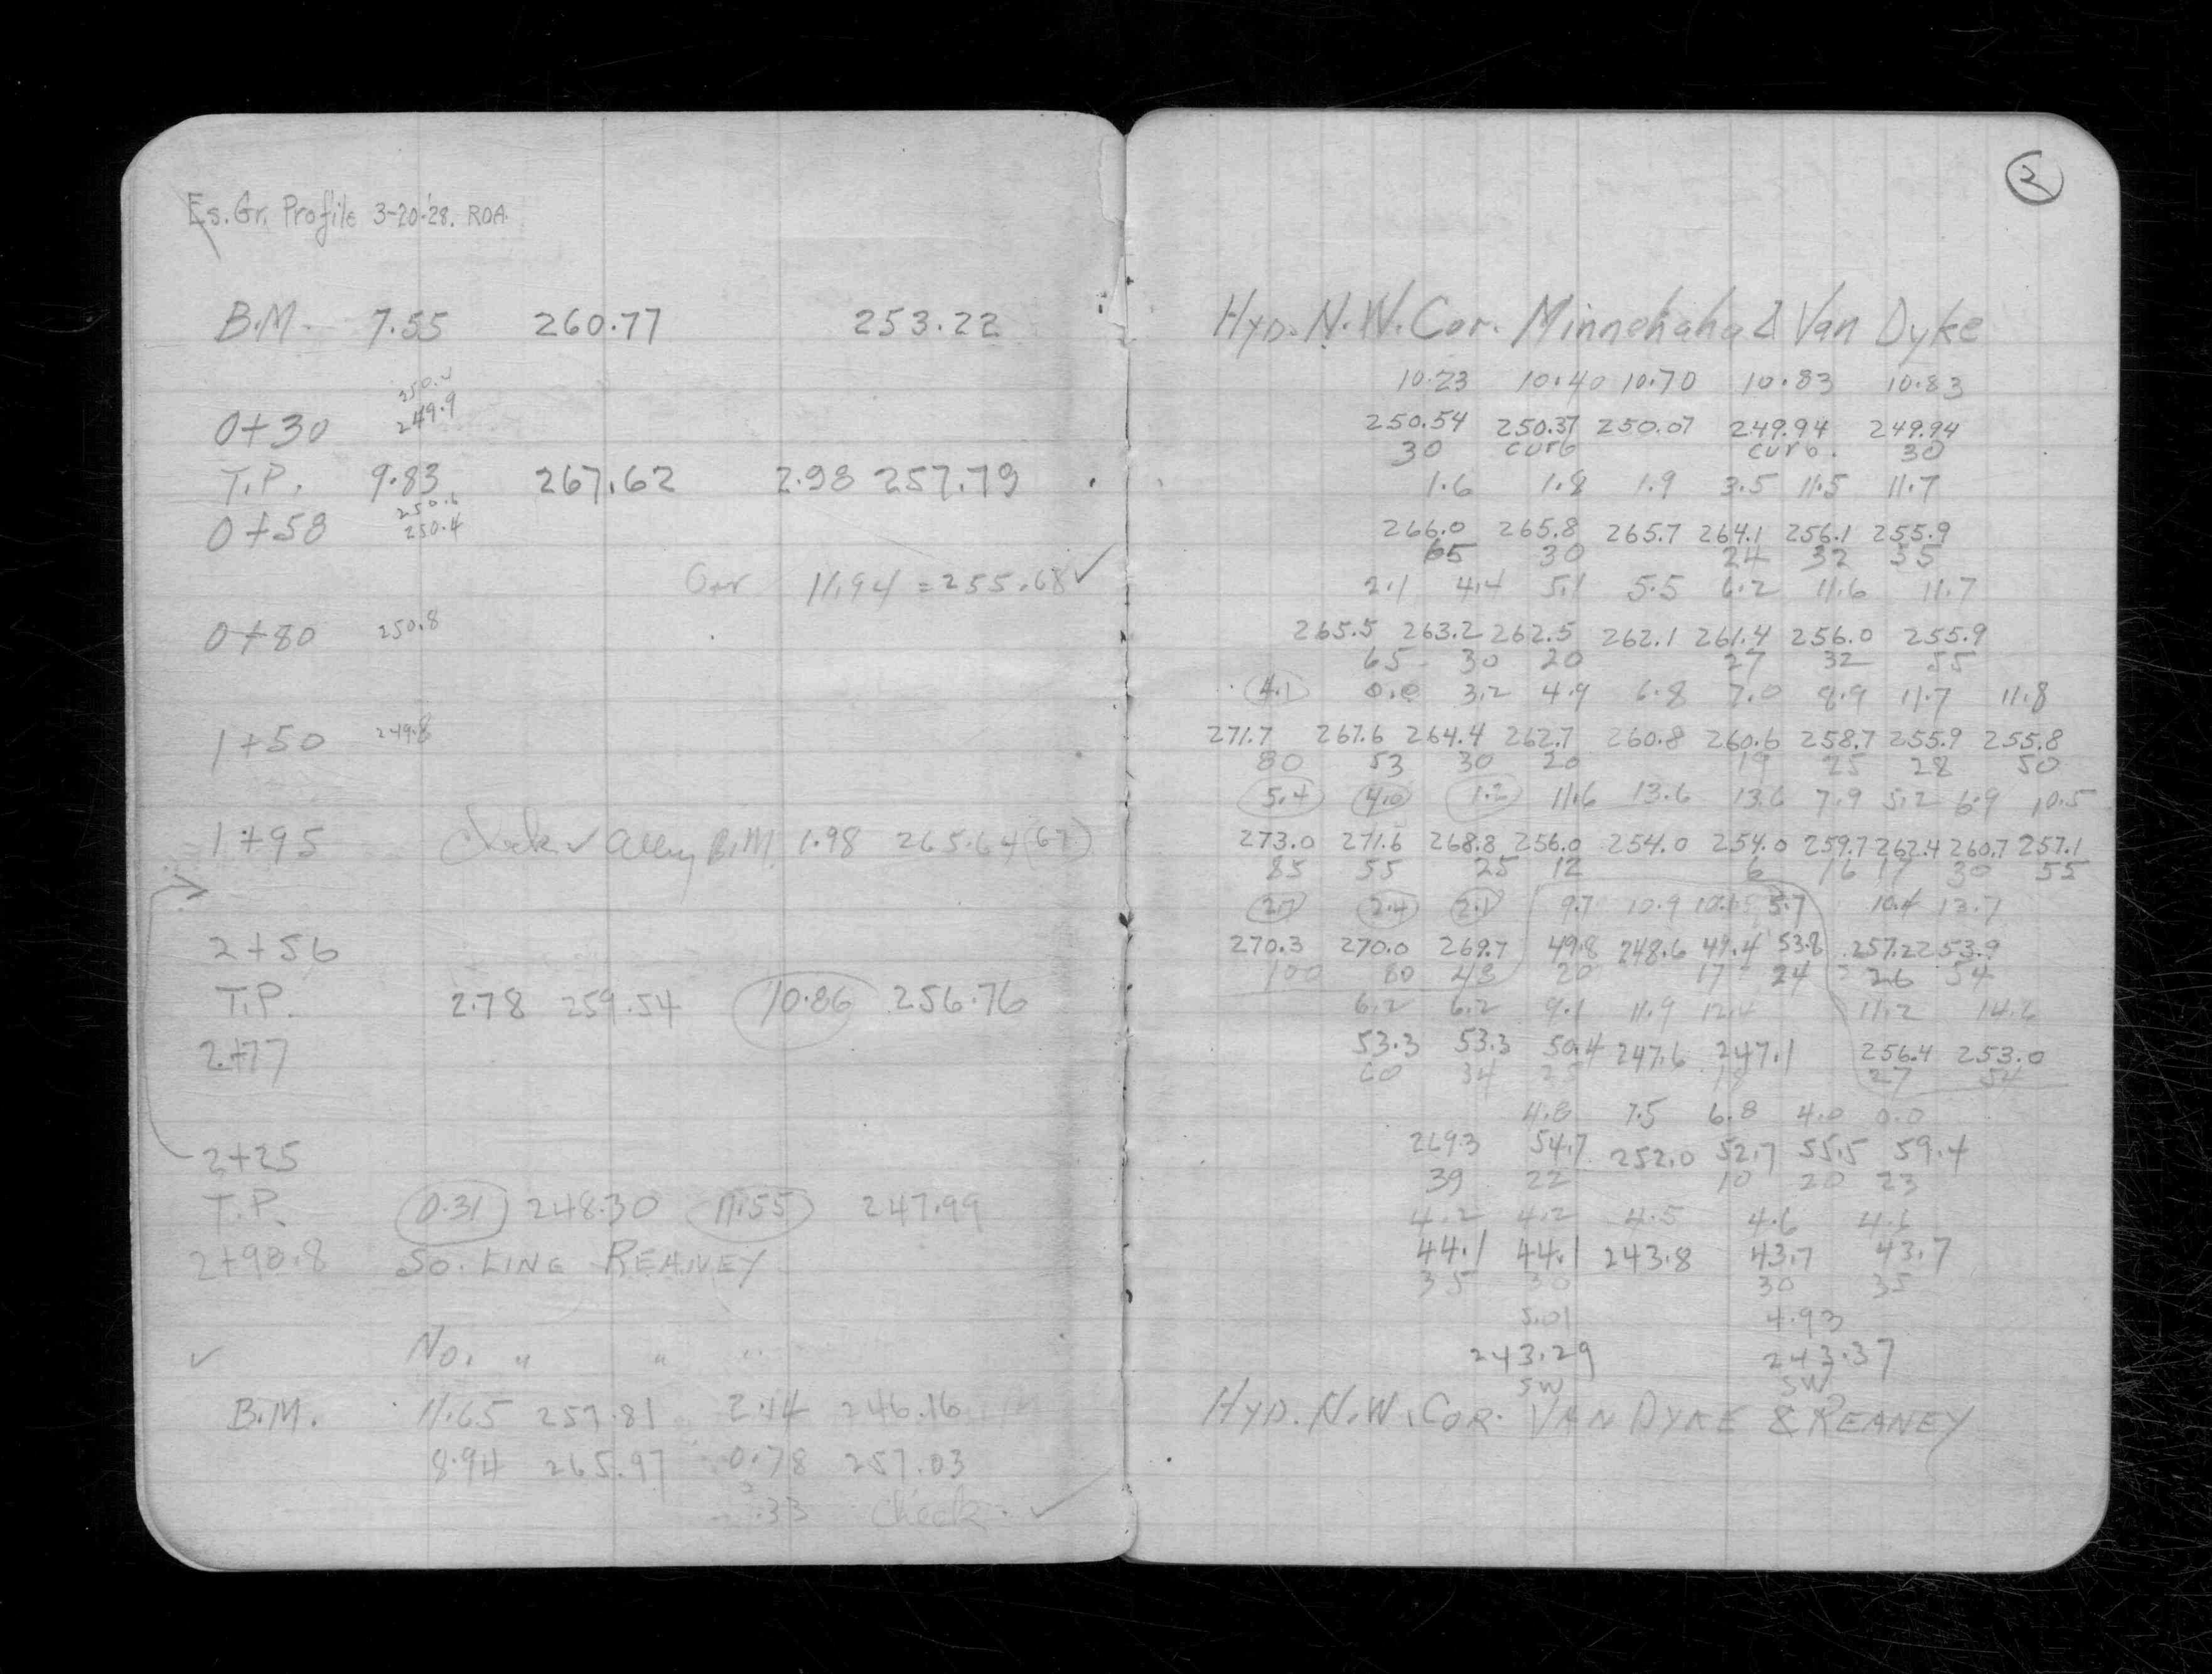 Es. Gr. Profile 3-20-'28. ROA.
B.M. 7.55 260.77 253.22
249.9
0+30
T.P. 9.83 267.62 2.98 257.79
250.6
0+58 250.4
11.94 = 255.68 ✓
0+80 250.8
1+50 249.8
1+95 Check ✓ Alley B.M. 1.98 265.64 (67)
2+56
T.P. 2.78 259.54 10.86 256.76
2+77
2+25
T.P. 0.31 248.30 11.55 247.99
2+90.8 SO. LINE REANEY
✓ No. " " "
B.M. 11.65 257.81 2.14 246.16
8.94 265.97 0.78 257.03
.33 Check. ✓
2
Hyd. N.W. Cor. Minnehaha & Van Dyke
10.23 10.40 10.70 10.83 10.83
250.54 250.37 250.07 249.94 249.94
30 curb curb. 30
1.6 1.8 1.9 3.5 11.5 11.7
266.0 265.8 265.7 264.1 256.1 255.9
65 30 24 32 55
2.1 4.4 5.1 5.5 6.2 11.6 11.7
265.5 263.2 262.5 262.1 261.4 256.0 255.9
65 30 20 27 32 55
4.1 0.0 3.2 4.9 6.8 7.0 8.9 11.7 11.8
271.7 267.6 264.4 262.7 260.8 260.6 258.7 255.9 255.8
80 53 30 20 19 25 28 50
5.4 4.0 1.2 11.6 13.6 13.6 7.9 5.2 6.9 10.5
273.0 271.6 268.8 256.0 254.0 254.0 259.7 262.4 260.7 257.1
85 55 25 12 6 16 17 30 55
2.7 2.4 2.1 9.7 10.9 10.1 5.7 10.4 13.7
270.3 270.0 269.7 49.8 248.6 49.4 53.8 257.2 253.9
100 80 48 20 17 24 26 54
6.2 6.2 9.1 11.9 12.4 11.2 14.6
53.3 53.3 50.4 247.6 247.1 256.4 253.0
60 34 25 27 54
4.8 7.5 6.8 4.0 0.0
269.3 54.7 252.0 52.7 55.5 59.4
39 22 10 20 23
4.2 4.2 4.5 4.6 4.6
44.1 44.1 243.8 43.7 43.7
35 30 30 35
5.01 4.93
243.29 243.37
SW SW
HYD. N.W. COR. VAN DYKE & REANEY